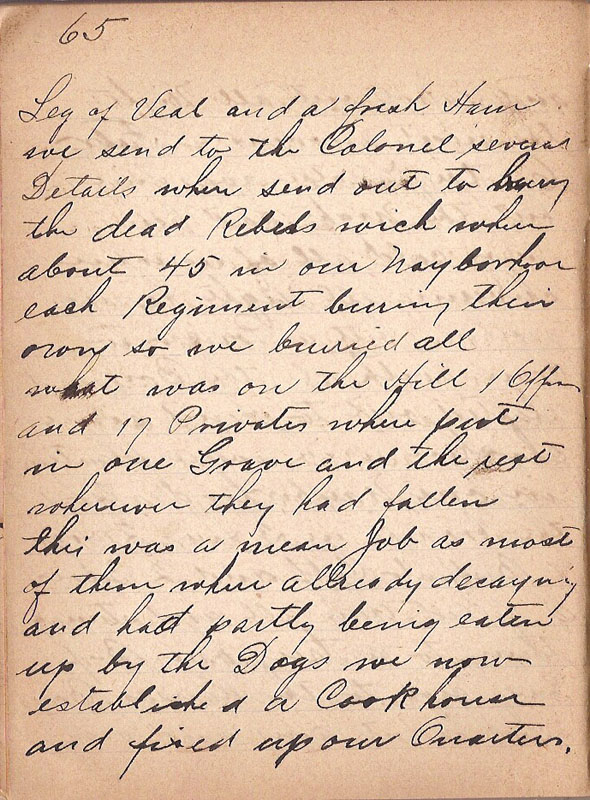 65
Leg of Veal and a fresh Ham
we send to the Colonel several
Details when send out to bury
the dead Rebels wich wher
about 45 in our Nayborhor
each Regiment buring their
own so we burried all
what was on the Hill 1 Officer
and 17 Privates where put
in one Grave and the rest
wherever they had fallen
this was a mean Job as most
of them where allready decaying
and hatt partly being eaten
up by the Dogs we now
established a Cookhouse
and fixed up our Quarters.